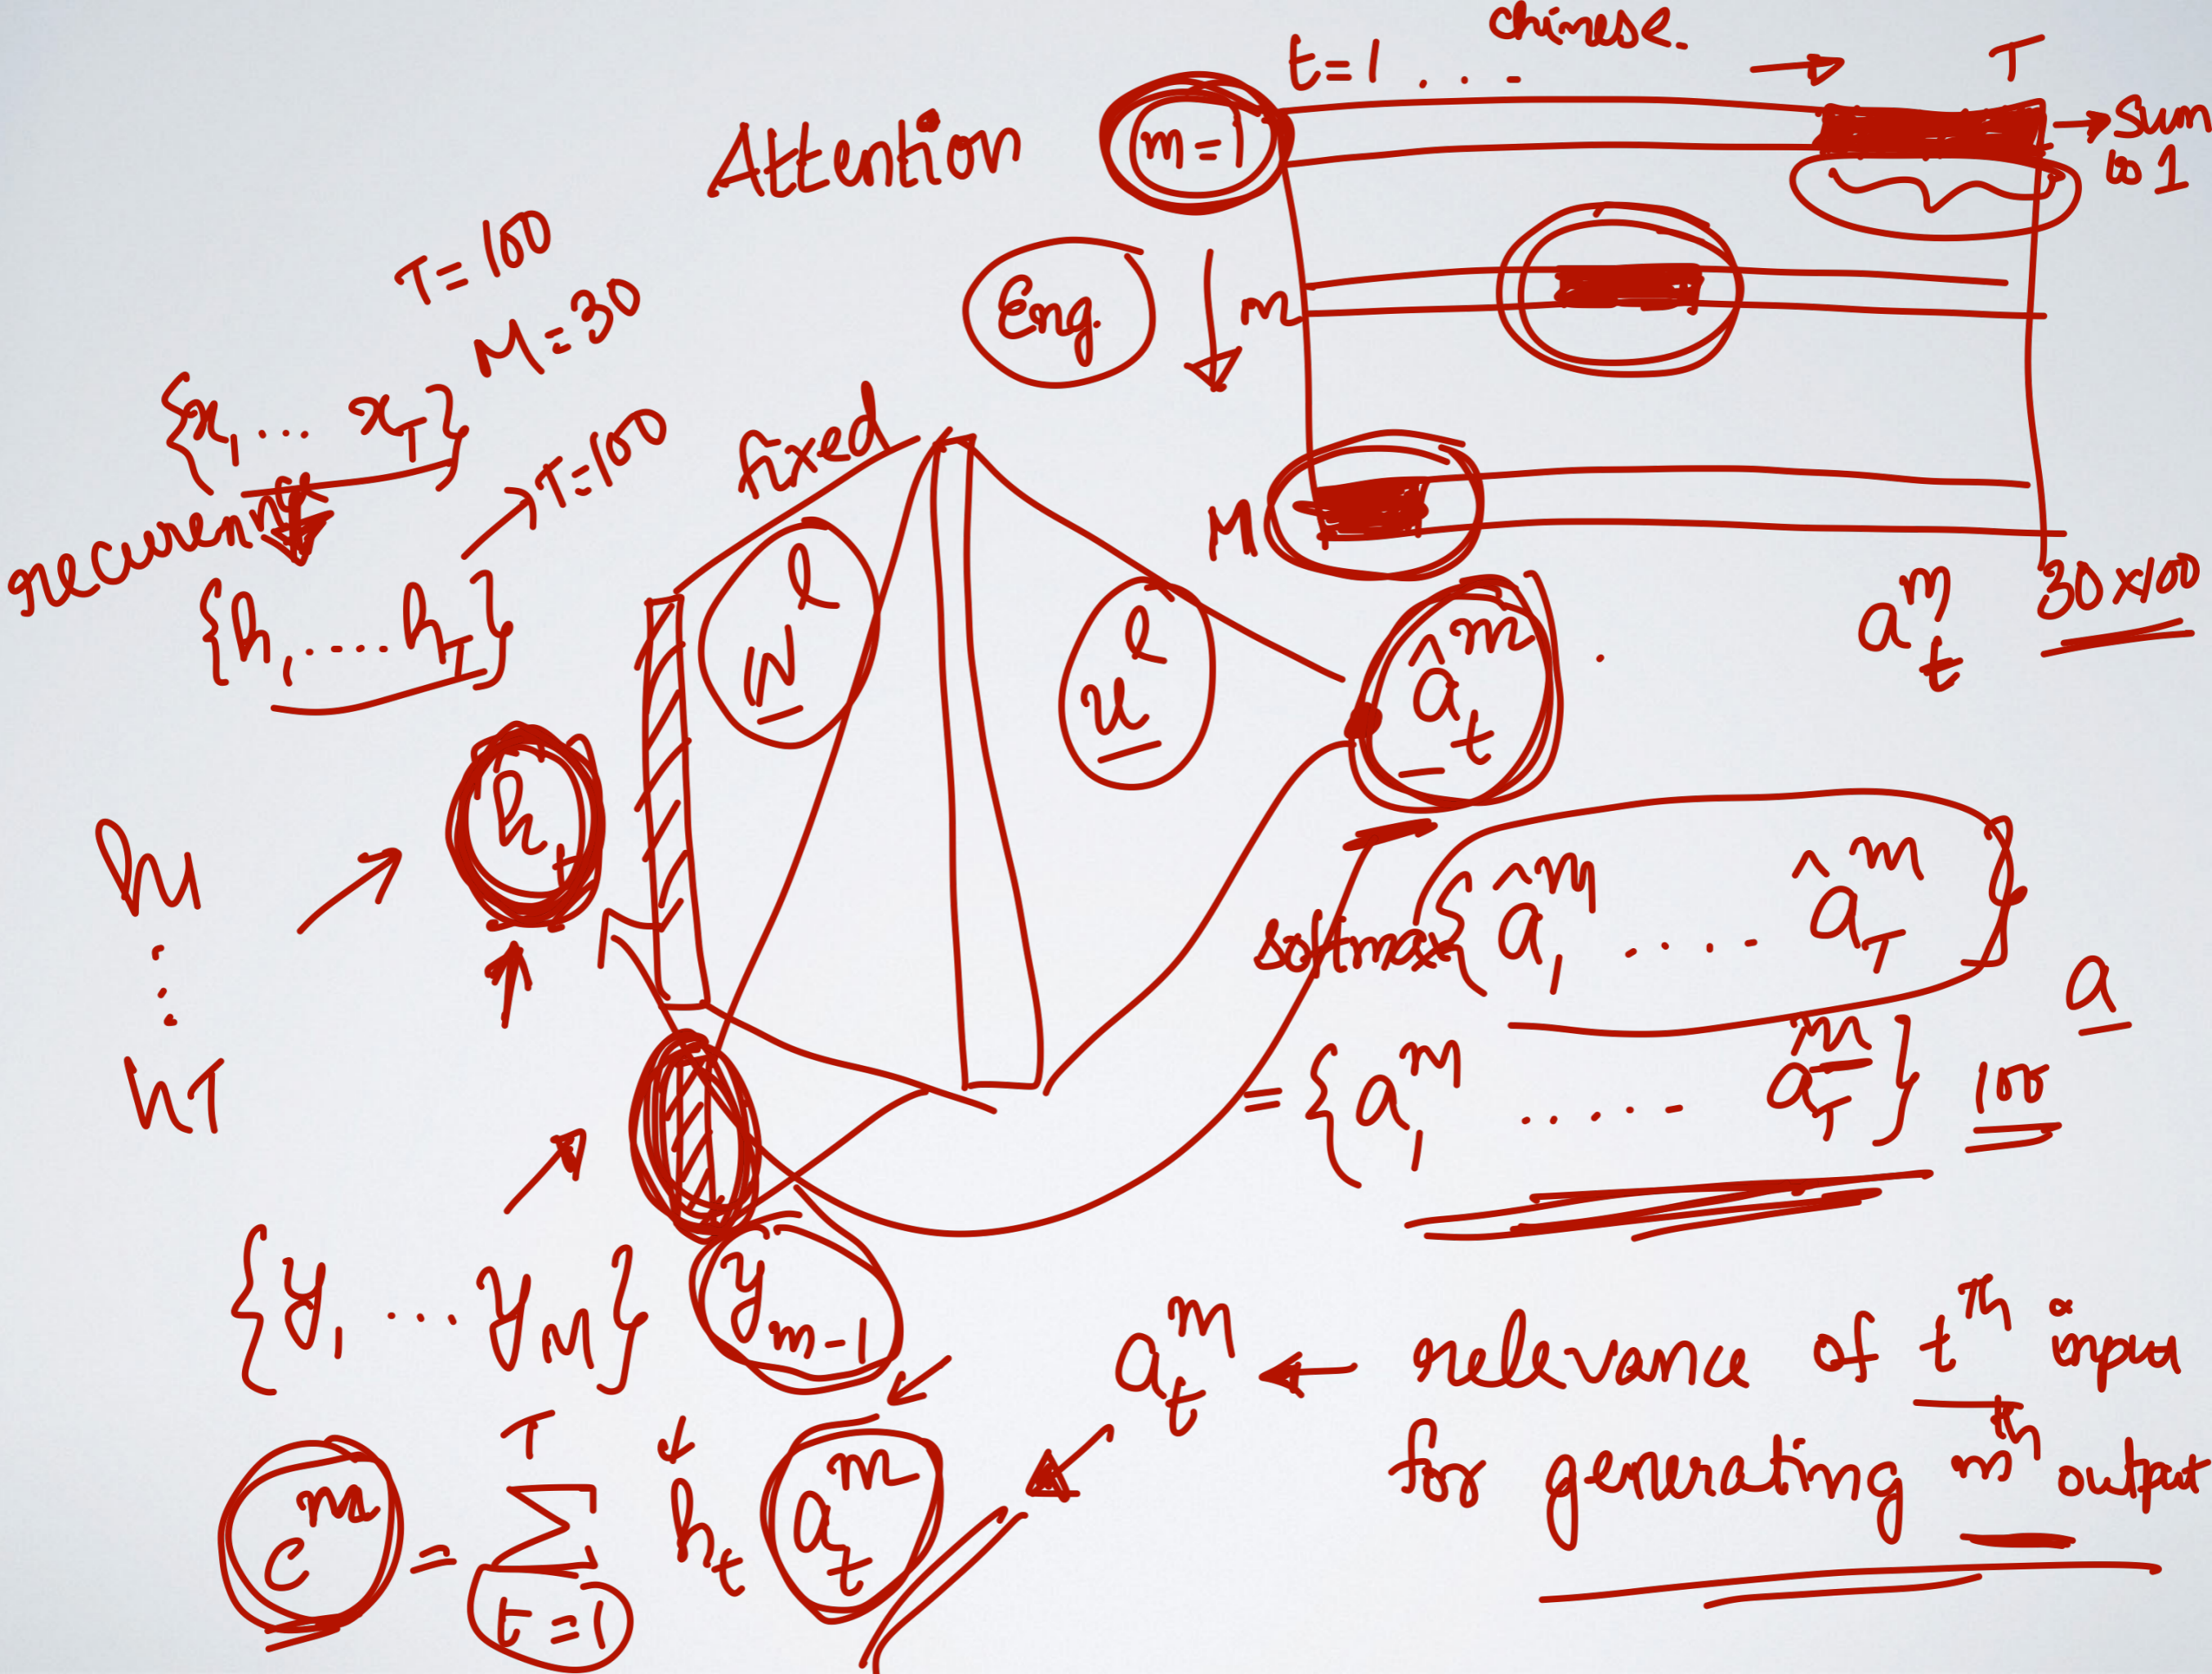 chinese.
t=1 . . . –
→ T
Attention
m=1
→ sum
to 1
T=100
M=30
Eng.
m
{x₁ ... x_T}
→ T=100
fixed
M
{h₁ ..... h_T}
W^l
u^l
â_t^m
a_t^m
30×100
h_t
h1
:
:
hT
softmax{â₁^m ..... â_T^m}
a
= {a₁^m ..... a_T^m}
100
{y₁ ... y_M}
y_{m-1}
a_t^m ← relevance of t^th input
for generating m^th output
c^m = Σ_{t=1}^{T} h_t a_t^m